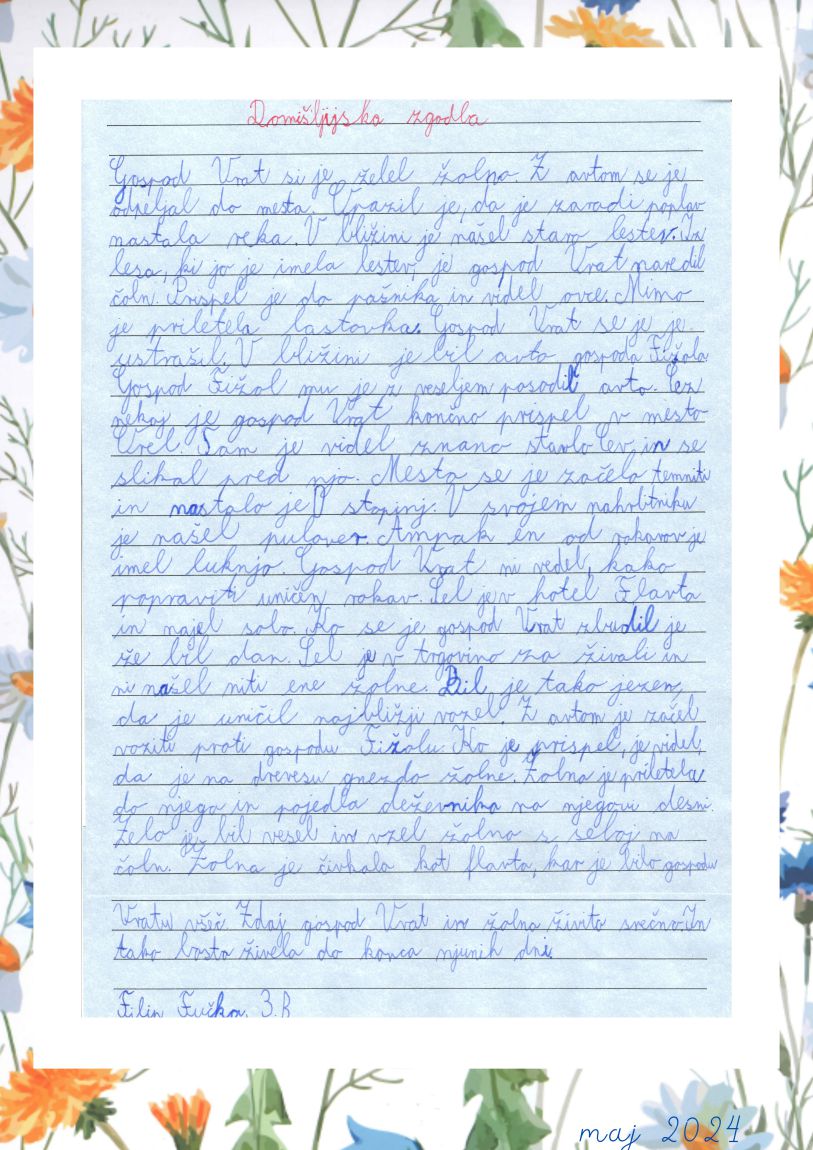 Domišljijska zgodba
Gospod Vrat si je želel žolno. Z avtom se je
odpeljal do mesta. Opazil je, da je zaradi poplav
nastala reka. V bližini je našel staro lestev. Iz
lesa, ki jo je imela lestev, je gospod Vrat naredil
čoln. Prispel je do pašnika in videl ovce. Mimo
je priletela lastovka. Gospod Vrat se je je
ustrašil. V bližini je bil avto gospoda Fižola
Gospod Fižol mu je z veseljem posodil avto. Čez
nekaj je gospod Vrat končno prispel v mesto
Orel. Tam je videl znano stavbo Cev in se
slikal pred njo. Mesto se je začelo temniti
in nastalo je 0 stopinj. V svojem nahrbtniku
je našel pulover. Ampak en od rokavov je
imel luknjo. Gospod Vrat ni vedel, kako
popraviti uničen rokav. Šel je v hotel Flavta
in najel sobo. Ko se je gospod Vrat zbudil je
že bil dan. Šel je v trgovino za živali in
ni našel niti ene žolne. Bil je tako jezen,
da je uničil najbližji vozel. Z avtom je začel
voziti proti gospodu Fižolu. Ko je prispel, je videl,
da je na drevesu gnezdo žolne. Žolna je priletela
do njega in pojedla deževnika na njegovi desni.
Zelo je bil vesel in vzel žolno s seboj na
čoln. Žolna je čivkala kot flavta, kar je bilo gospodu
Vratu všeč. Zdaj gospod Vrat in žolna živita srečno. In
tako bosta živela do konca njunih dni.
Filip Fučka, 3. B
maj 2024